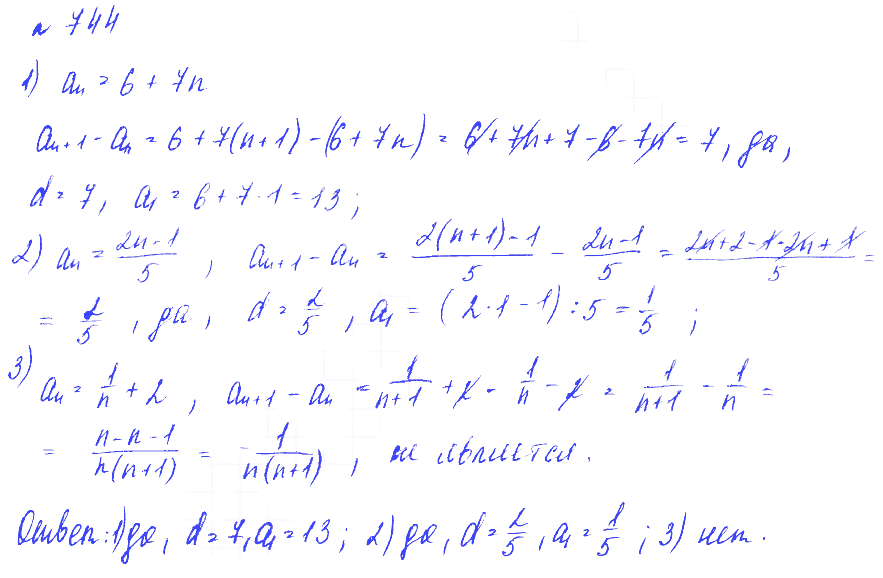 № 744
1) aₙ = 6 + 7n
aₙ₊₁ - aₙ = 6 + 7(n+1) - (6 + 7n) = 6 + 7n + 7 - 6 - 7n = 7, да,
d = 7, a₁ = 6 + 7·1 = 13;
2) aₙ = (2n-1)/5, aₙ₊₁ - aₙ = (2(n+1)-1)/5 - (2n-1)/5 = (2n+2-1-2n+1)/5 =
= 2/5, да, d = 2/5, a₁ = (2·1-1):5 = 1/5;
3) aₙ = 1/n + 2, aₙ₊₁ - aₙ = 1/(n+1) + 2 - 1/n - 2 = 1/(n+1) - 1/n =
= (n-n-1)/(n(n+1)) = -1/(n(n+1)), не является.
Ответ: 1) да, d = 7, a₁ = 13; 2) да, d = 2/5, a₁ = 1/5; 3) нет.